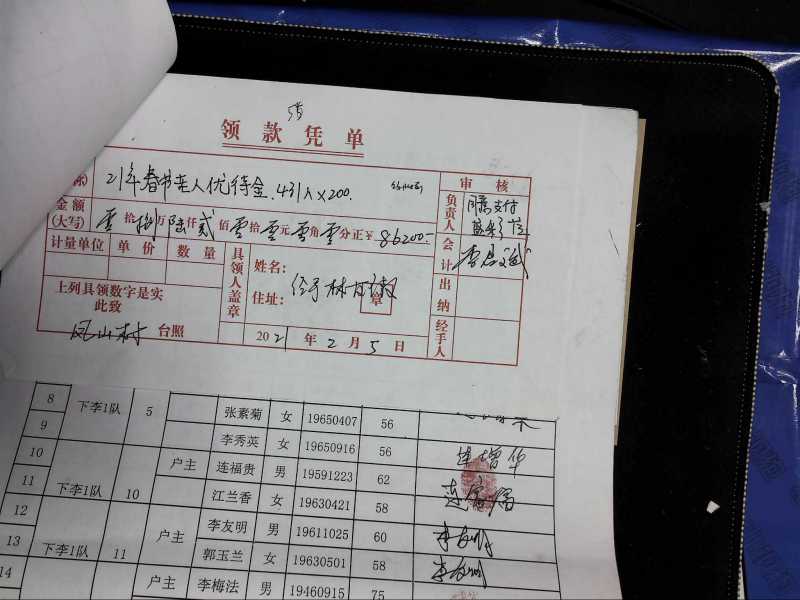 领款凭单
称) 21年春节老人优待金.431人×200. 审核
负责人 同意支付
金额(大写) 零拾捌万陆仟贰佰零拾零元零角零分正至86200-
计量单位 单价 数量 具领人盖章 姓名: 会计
上列具领数字是实 住址: 章 出纳
此致
凤山村 台照 2021年2月5日 经手人
8 下李1队 5 张素菊 女 19650407 56
9 李秀英 女 19650916 56 连增华
10 下李1队 10 户主 连福贵 男 19591223 62
11 江兰香 女 19630421 58
12 下李1队 11 户主 李友明 男 19611025 60 李友明
13 郭玉兰 女 19630501 58 李友明
14 户主 李梅法 男 19460915 75